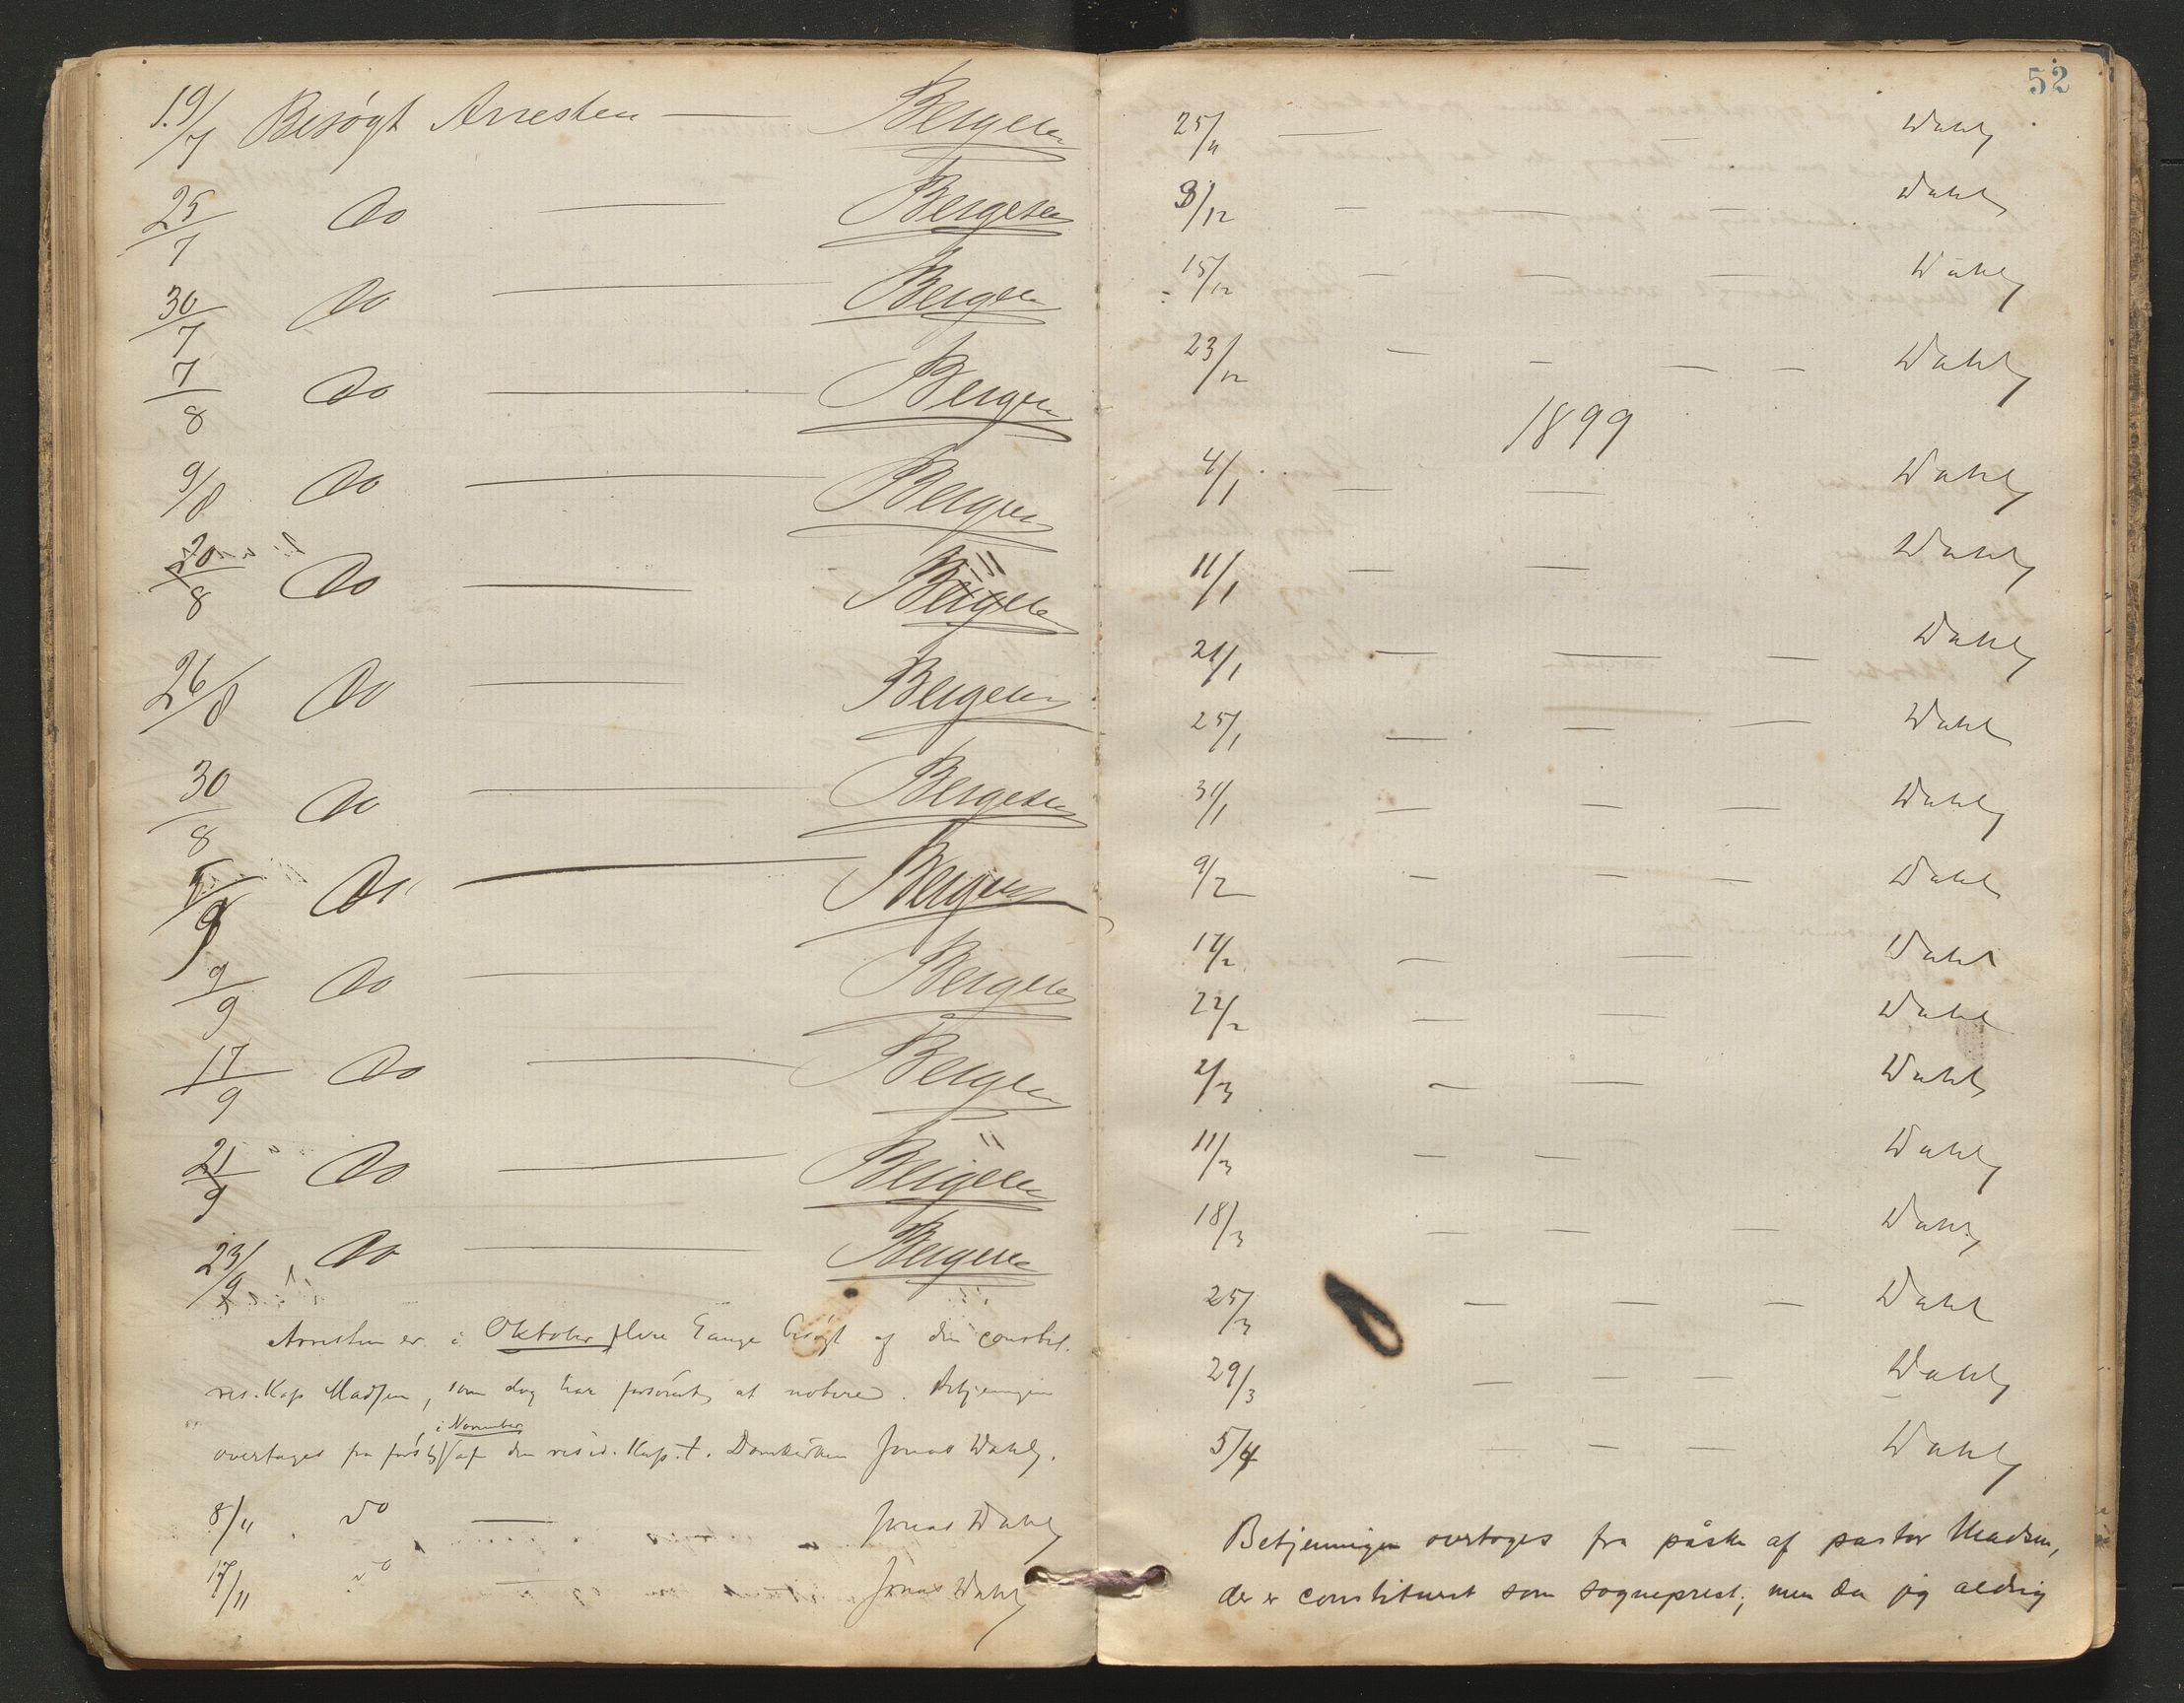 19/7 Besøgt Arresten — Bergesen
25/7 Do — Bergesen
30/7 Do — Bergesen
7/8 Do — Bergesen
9/8 Do — Bergesen
20/8 Do — Bergesen
26/8 Do — Bergesen
30/8 Do — Bergesen
5/9 Do — Bergesen
9/9 Do — Bergesen
17/9 Do — Bergesen
21/9 Do — Bergesen
23/9 Do — Bergesen
Arresten er i Oktober flere Gange besøgt af den constit.
res. Kap Madsen, som dog har forsømt at notere. Betjeningen
i November
overtages fra først af den resid. Kap. t. Domkirken Jonas Dahl.
8/11 do — Jonas Dahl
17/11 do — Jonas Dahl
52
25/11 — — Dahl
3/12 — — — Dahl
15/12 — — — Dahl
23/12 — — — — Dahl
1899
4/1 — — Dahl
11/1 — — Dahl
21/1 — — — Dahl
25/1 — — — Dahl
31/1 — — — Dahl
9/2 — — — Dahl
17/2 — — Dahl
22/2 — — Dahl
2/3 — — Dahl
11/3 — — Dahl
18/3 — — — Dahl
25/3 — — — Dahl
29/3 — — — Dahl
5/4 — — Dahl
Betjeningen overtoges fra påske af pastor Madsen,
der er constitueret som sogneprest; men da jeg aldrig